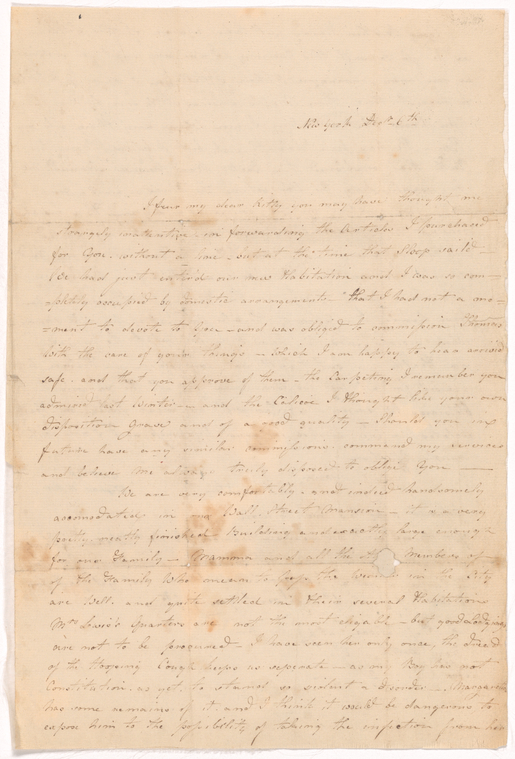 New York Decr 6th
I fear my dear Kitty you may have thought me
strangely inattentive in forwarding the Articles I purchased
for You, without a line but at the time that Sloop sail'd
We had just entered our new Habitation and I was so com-
pletely occupied by domestic arrangements that I had not a mo-
=ment to devote to You – and was obliged to commission Thomas
with the care of your things – which I am happy to hear arrived
safe, and that you approve of them – the Carpeting I remember you
admired last Winter – and the Calicoe I thought like your own
disposition Grave and of a good quality – Should you in
future have any similar commissions command my services
and believe me always truly disposed to oblige You –
We are very comfortably and indeed handsomely
accomodated in our Wall Street Mansion – it is a very
pretty neatly finished Building and exactly large enough
for our Family – Gramama and all the members of
of the Family who mean to pass the Winter in the City
are Well, and quite settled in their several Habitations
Mrs Lewis's Quarters are not the most elegable – but good Lodgings
are not to be procured I have seen her only once, the dread
of the Hooping Cough keeps us seperate – as my Boy has not
Constitution as yet, to stand so violent a disorder – Margaret
has some remains of it and I think it would be dangerous to
expose him to the possibility of taking the infection from her